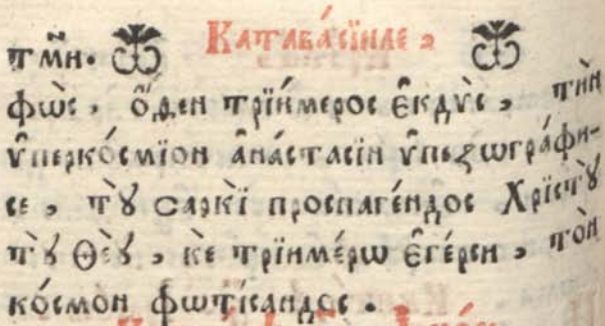 Катава́сїиле ,
тм҃н .
фѡ̀с , ѻ҆́ден трїи́мерос є҆кдѵ̀с , ти̑н
ѵ҆перко́смїон а҆на́стасїн ѵ҆пезѡгра́фи-
се , тꙋ̀ саркѝ проспаге́ндос Хрїстꙋ̀
тꙋ̀ Ѳеꙋ̀ , кѐ трїиме́рѡ є҆ге́рси , то̀н
ко́смон фѡтїсандос .